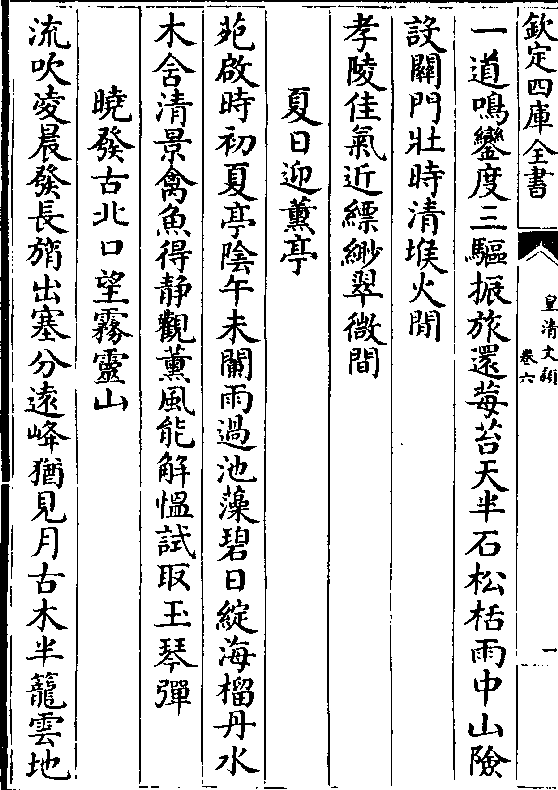 欽定四庫全書
皇清文穎
卷六
一
一道鳴鑾度三驅振旅還莓苔天半石松栝雨中山險
設關門壯時清堠火閒
孝陵佳氣近縹緲翠微間
夏日迎薰亭
苑啟時初夏亭陰午未闌雨過池藻碧日綻海榴丹水
木含清景禽魚得静觀薰風能解慍試取玉琴彈
曉發古北口望霧靈山
流吹凌晨發長旓出塞分遠峰猶見月古木半籠雲地